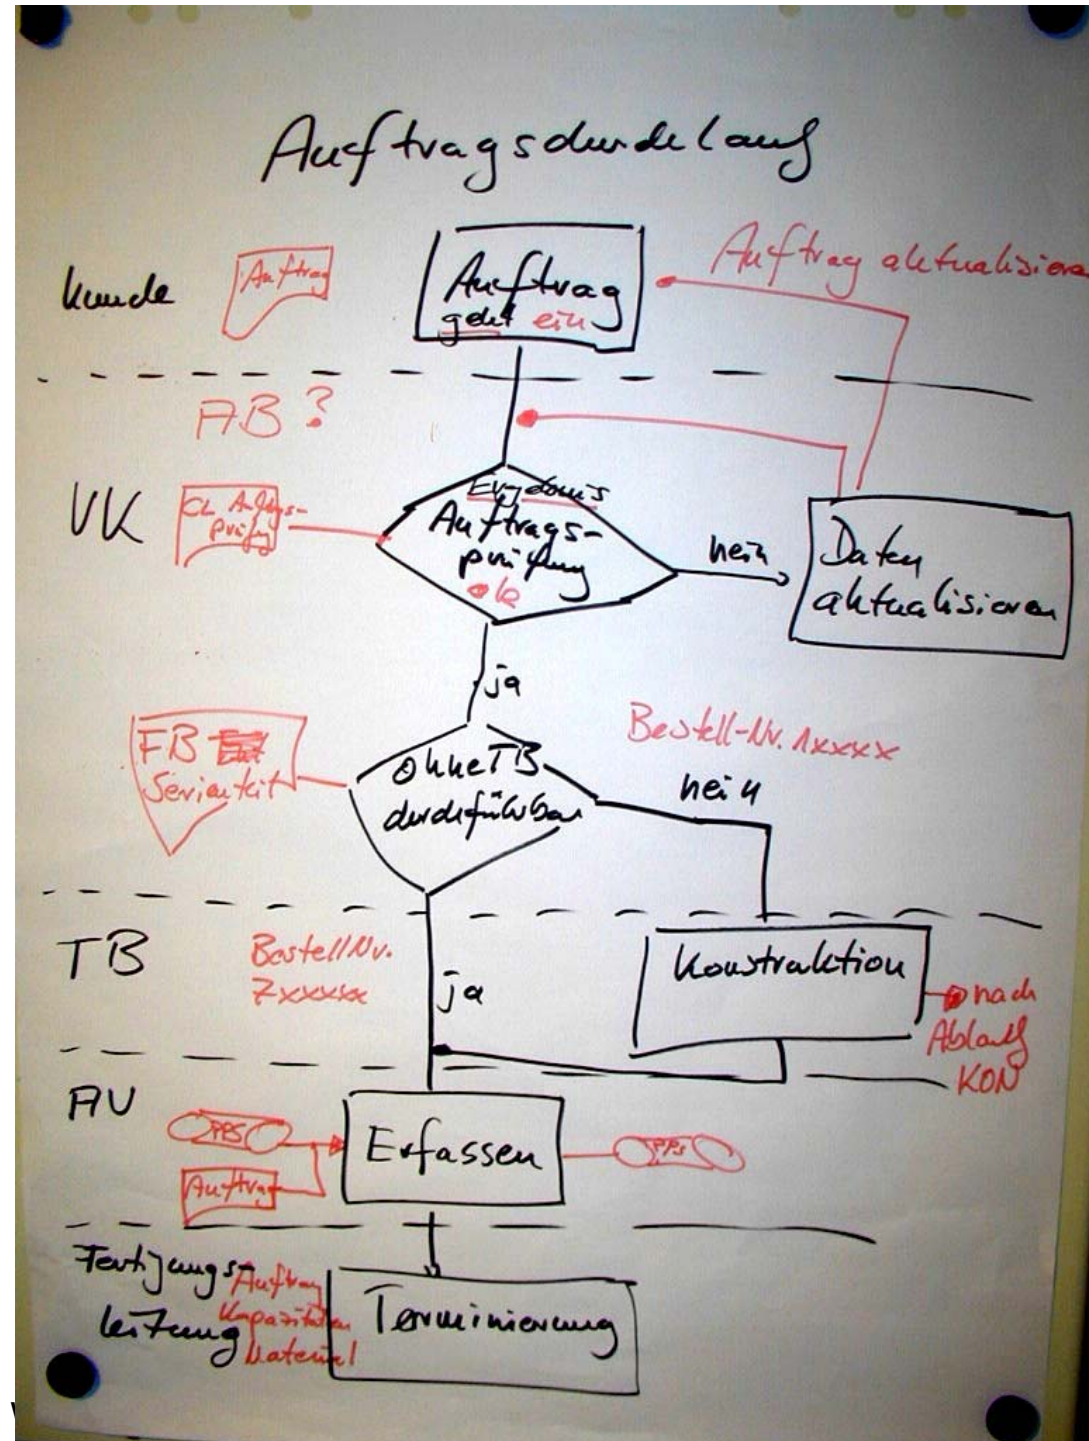 Auftragsdurchlauf
Kunde
Auftrag
Auftrag
geht ein
Auftrag aktualisieren
AB?
VK
CL Auftrags-
prüfg
Auftrags-
prüfung
ok
nein
Daten
aktualisieren
ja
FB
Serienkit
ohne TB
durchführbar
Bestell-Nr. 1xxxx
nein
TB
Bestell Nr.
7xxxxx
ja
Konstruktion
nach
Ablauf
KON
AV
PPS
Auftrag
Erfassen
PPS
Fertigungs-
leitung
Auftrag
Kapazitäten
Material
Terminierung